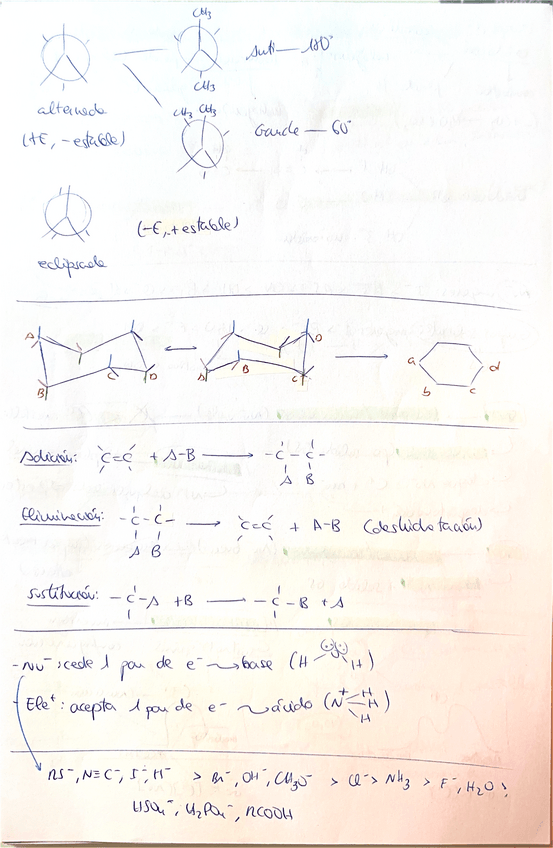 CH3
anti — 180°
CH3
alternada
CH3 CH3
(+E, -estable)
Gauche — 60°
(-E, +estable)
eclipsada
A
B
C
D
A
B
C
D
a
b
c
d
Adición: C=C + A-B → -C-C-
A B
Eliminación: -C-C- → C=C + A-B (deshidratación)
A B
Sustitución: -C-A + B → -C-B + A
- Nu⁻: cede 1 par de e⁻ → base (H H)
- Ele⁺: acepta 1 par de e⁻ → ácido (N⁺ H H H)
RS⁻, N≡C⁻, I⁻, H⁻ > Br⁻, OH⁻, CH3O⁻ > Cl⁻ > NH3 > F⁻, H2O >
HSO4⁻, H2PO4⁻, RCOOH